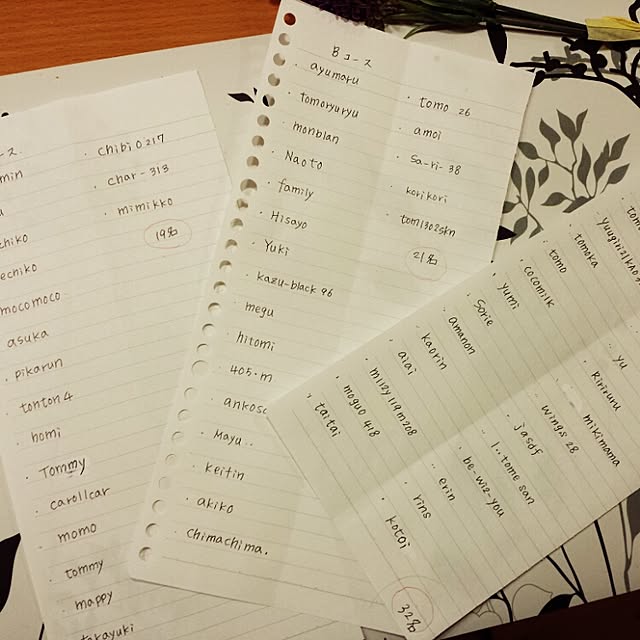 コース.
min
chibi 0217
char-313
chiko
mimikko
19名
echiko
mocomoco
asuka
pikarun
tonton4
homi
Tommy
carollcar
momo
tommy
mappy
takayuki
Bコース
ayumaru
tomoryuryu
monblan
Naoto
family
Hisayo
Yuki
kazu-black 96
megu
hitomi
405.m
ankoso
Mayu..
keitin
akiko
chimachima.
tomo 26
amoi
sa-ri-38
korikori
tom1302skn
21名
tomoka
tomo
cocomilk
yumi
Sorie
amanon
kaorin
aiai
m112y119m1208
moguo 418
taitai
yu
Ririruru
mikimama
wings 28
jasof
1..tome san
be-wiz-you
erin
rins
kotoi
32名